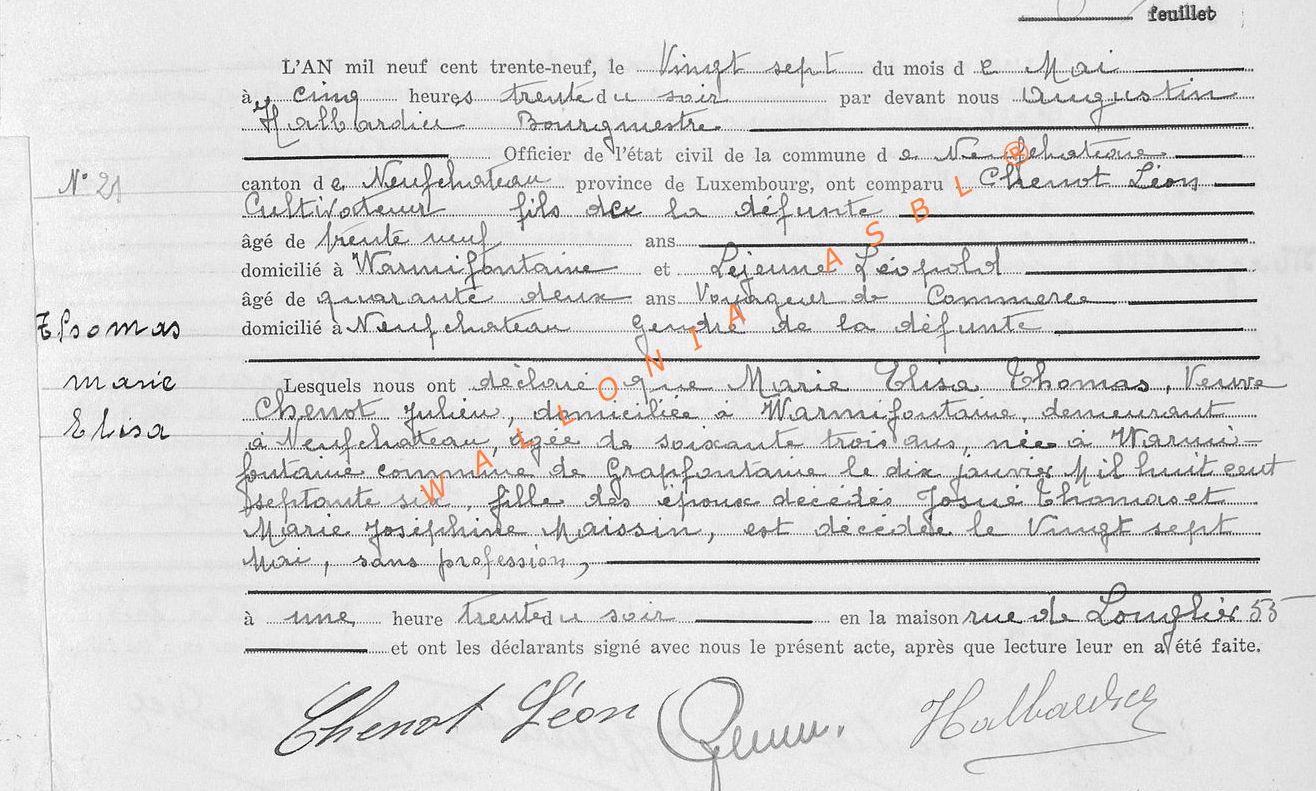 feuillet
L'AN mil neuf cent trente-neuf, le Vingt sept du mois d e Mai
à cinq heures trente du soir par devant nous Augustin
Halbardier Bourgmestre
Officier de l'état civil de la commune d e Neufchateau
N° 21
canton de Neufchateau province de Luxembourg, ont comparu Chenot Léon
Cultivateur fils de la défunte
âgé de trente neuf ans
domicilié à Warmifontaine et Lejeune Léopold
âgé de quarante deux ans Voyageur de Commerce
domicilié à Neufchateau gendre de la défunte
Thomas
marie
Elisa
Lesquels nous ont déclaré que Marie Elisa Thomas, Veuve
Chenot Julien, domiciliée à Warmifontaine, demeurant
à Neufchateau, âgée de soixante trois ans, née à Warmi-
fontaine commune de Grapfontaine le dix janvier Mil huit cent
septante six, fille des époux décédés Josué Thomas et
Marie Joséphine Maissin, est décédée le Vingt sept
Mai, sans profession,
à une heure trente du soir en la maison rue de Longlier 55
et ont les déclarants signé avec nous le présent acte, après que lecture leur en a été faite.
Chenot Léon Halbardier
WALLONIA ASBL ®